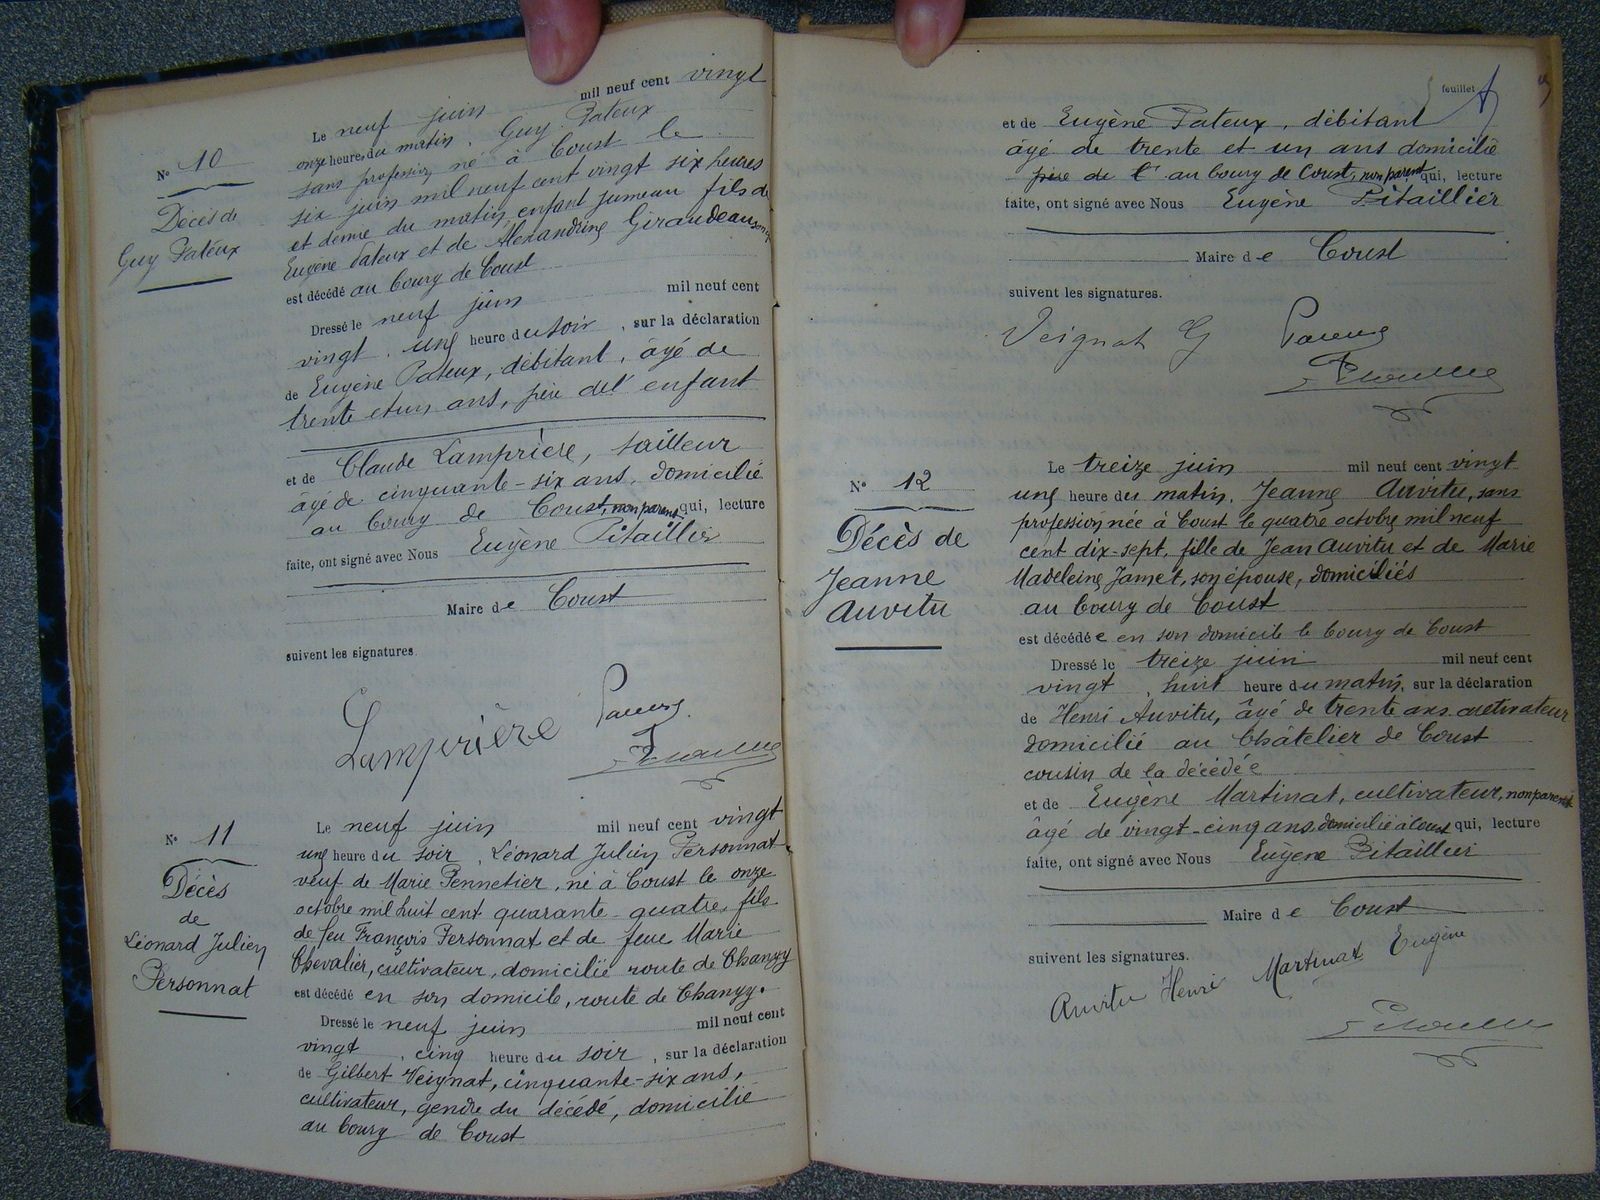 N° 10
Décès de
Guy Pateux
Le neuf juin mil neuf cent vingt
onze heures du matin, Guy Pateux
sans profession né à Coust le
six juin mil neuf cent vingt six heures
et demie du matin, enfant jumeau fils de
Eugène Pateux et de Alexandrine Giraudeau
est décédé au bourg de Coust
Dressé le neuf juin mil neuf cent
vingt, une heure du soir, sur la déclaration
de Eugène Pateux, débitant, âgé de
trente et un ans, père de l'enfant
et de Claude Lamprière, tailleur
âgé de cinquante-six ans, domicilié
au bourg de Coust, non parent qui, lecture
faite, ont signé avec Nous Eugène Pitaillier
Maire de Coust
suivent les signatures.
Lamprière Pateux
N° 11
Décès
de
Léonard Julien
Personnat
Le neuf juin mil neuf cent vingt
une heure du soir, Léonard Julien Personnat
veuf de Marie Pennetier, né à Coust le onze
octobre mil huit cent quarante-quatre, fils
de feu François Personnat et de feue Marie
Chevalier, cultivateur, domicilié route de Changy
est décédé en son domicile, route de Changy.
Dressé le neuf juin mil neuf cent
vingt, cinq heure du soir, sur la déclaration
de Gilbert Veignat, cinquante-six ans,
cultivateur, gendre du décédé, domicilié
au bourg de Coust
feuillet
et de Eugène Pateux, débitant
âgé de trente et un ans domicilié
père de l' au bourg de Coust, non parent qui, lecture
faite, ont signé avec Nous Eugène Pitaillier
Maire de Coust
suivent les signatures.
Veignat G Pateux
N° 12
Décès de
Jeanne
Auvitu
Le treize juin mil neuf cent vingt
une heure du matin, Jeanne Auvitu, sans
profession née à Coust le quatre octobre mil neuf
cent dix-sept, fille de Jean Auvitu et de Marie
Madeleine Jamet, son épouse, domiciliés
au bourg de Coust
est décédée en son domicile le bourg de Coust
Dressé le treize juin mil neuf cent
vingt, huit heure du matin, sur la déclaration
de Henri Auvitu, âgé de trente ans cultivateur
domicilié au Châtelier de Coust
cousin de la décédée
et de Eugène Martinat, cultivateur, non parent
âgé de vingt-cinq ans domicilié à Coust qui, lecture
faite, ont signé avec Nous Eugène Pitaillier
Maire de Coust
suivent les signatures.
Auvitu Henri Martinat Eugène